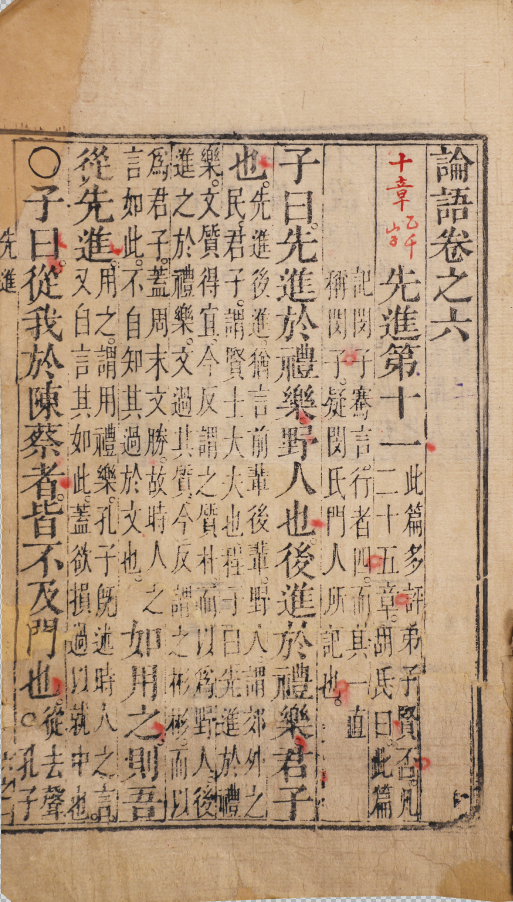 論語卷之六
先進第十一
此篇多評弟子賢否凡
二十五章胡氏曰此篇
十章
記閔子騫言行者四而其一直
稱閔子疑閔氏門人所記也
子曰先進於禮樂野人也後進於禮樂君子
也
先進後進猶言前輩後輩野人謂郊外之
民君子謂賢士大夫也程子曰先進於禮
樂文質得宜今反謂之質朴而以爲野人後
進之於禮樂文過其質今反謂之彬彬而以
爲君子蓋周末文勝故時人之
言如此不自知其過於文也
如用之則吾
從先進
用之謂用禮樂孔子旣述時人之言
又自言其如此蓋欲損過以就中也
〇子曰從我於陳蔡者皆不及門也
從去聲
孔子
先進